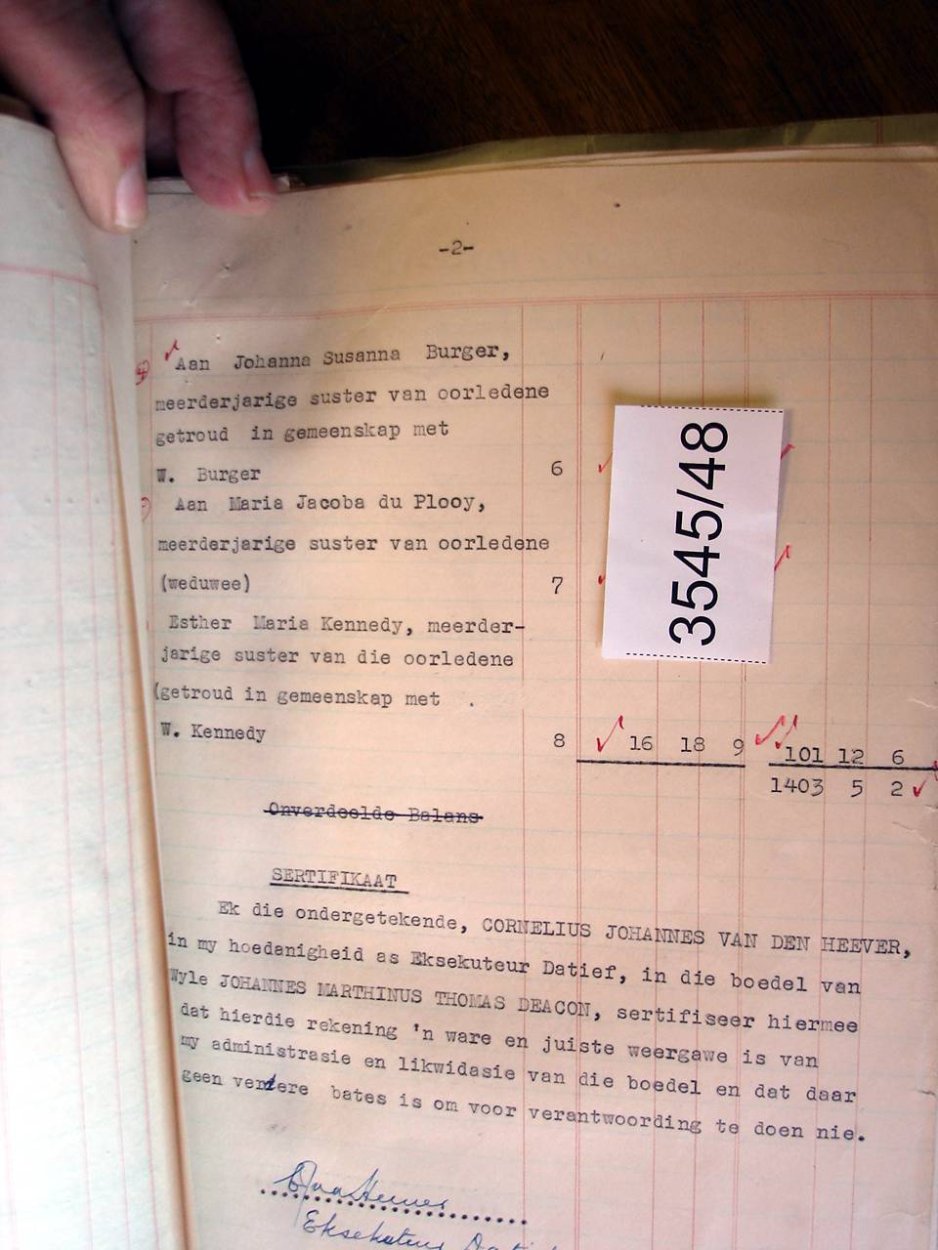 -2-
Aan Johanna Susanna Burger,
meerderjarige suster van oorledene
getroud in gemeenskap met
W. Burger 6
Aan Maria Jacoba du Plooy,
meerderjarige suster van oorledene
(weduwee) 7
3545/48
Esther Maria Kennedy, meerder-
jarige suster van die oorledene
(getroud in gemeenskap met
W. Kennedy 8 16 18 9 101 12 6
1403 5 2
Onverdeelde Balans
SERTIFIKAAT
Ek die ondergetekende, CORNELIUS JOHANNES VAN DEN HEEVER,
in my hoedanigheid as Eksekuteur Datief, in die boedel van
Wyle JOHANNES MARTHINUS THOMAS DEACON, sertifiseer hiermee
dat hierdie rekening 'n ware en juiste weergawe is van
my administrasie en likwidasie van die boedel en dat daar
geen verdere bates is om voor verantwoording te doen nie.
Eksekuteur